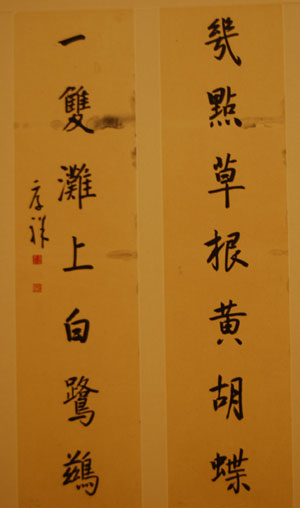 幾點草根黄胡蝶
一雙灘上白鷺鷀
祥